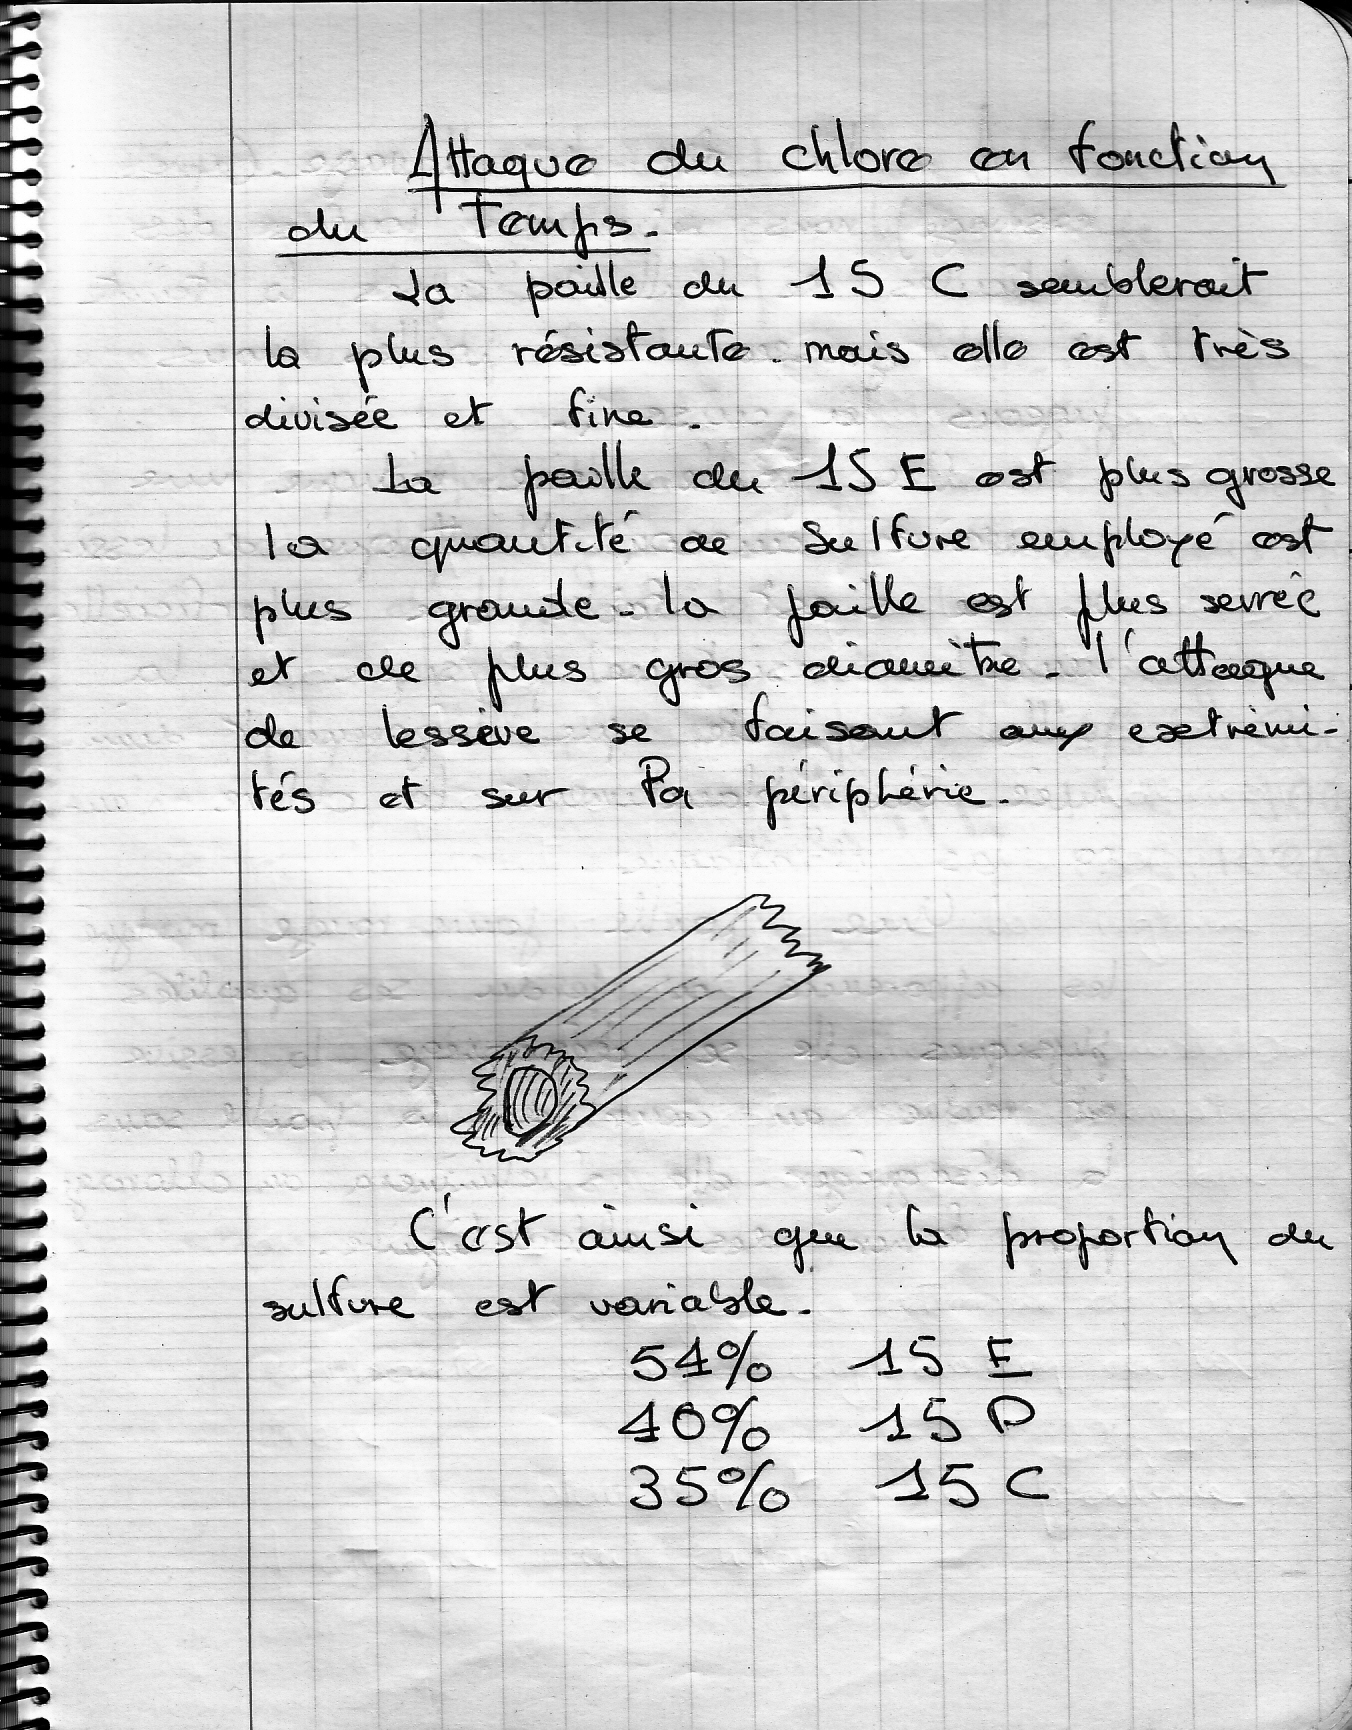 Attaque du chlore en fonction
du Temps.
La paille du 15 C semblerait
la plus résistante. mais elle est très
divisée et fine.
La paille du 15 E est plus grosse
la quantité de Sulfure employé est
plus grande. la paille est plus serrée
et de plus gros diamètre. l'attaque
de lessive se faisant aux extrémi-
tés et sur la périphérie.
C'est ainsi que la proportion du
sulfure est variable.
54% 15 E
40% 15 D
35% 15 C